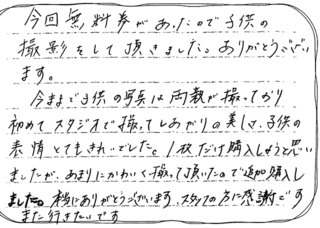 今回無料券があったので子供の
撮影をして頂きました。ありがとうござい
ます。
今まで子供の写真は両親が撮っており
初めてスタジオで撮ってしあがりの美しさ、子供の
表情とてもきれいでした。1枚だけ購入しようと思い
ましたが、あまりにかわいく撮って頂いたので追加購入し
ました。本当にありがとうございます、スタッフの方に感謝です
また行きたいです